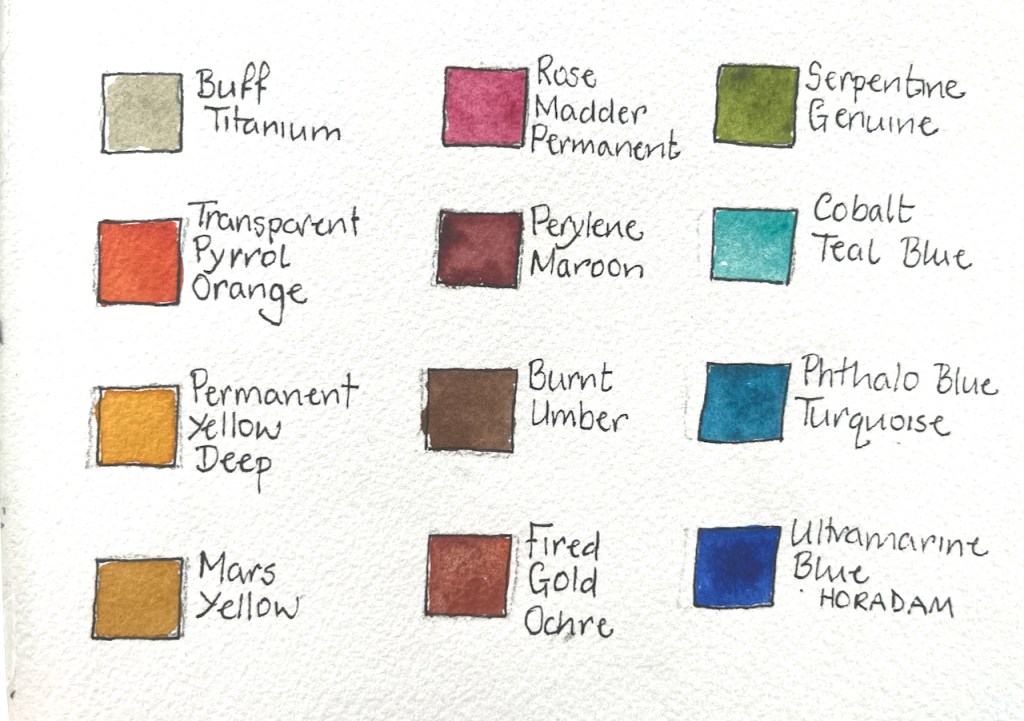 Buff
Titanium
Transparent
Pyrrol
Orange
Permanent
Yellow
Deep
Mars
Yellow
Rose
Madder
Permanent
Perylene
Maroon
Burnt
Umber
Fired
Gold
Ochre
Serpentine
Genuine
Cobalt
Teal Blue
Phthalo Blue
Turquoise
Ultramarine
Blue
HORADAM